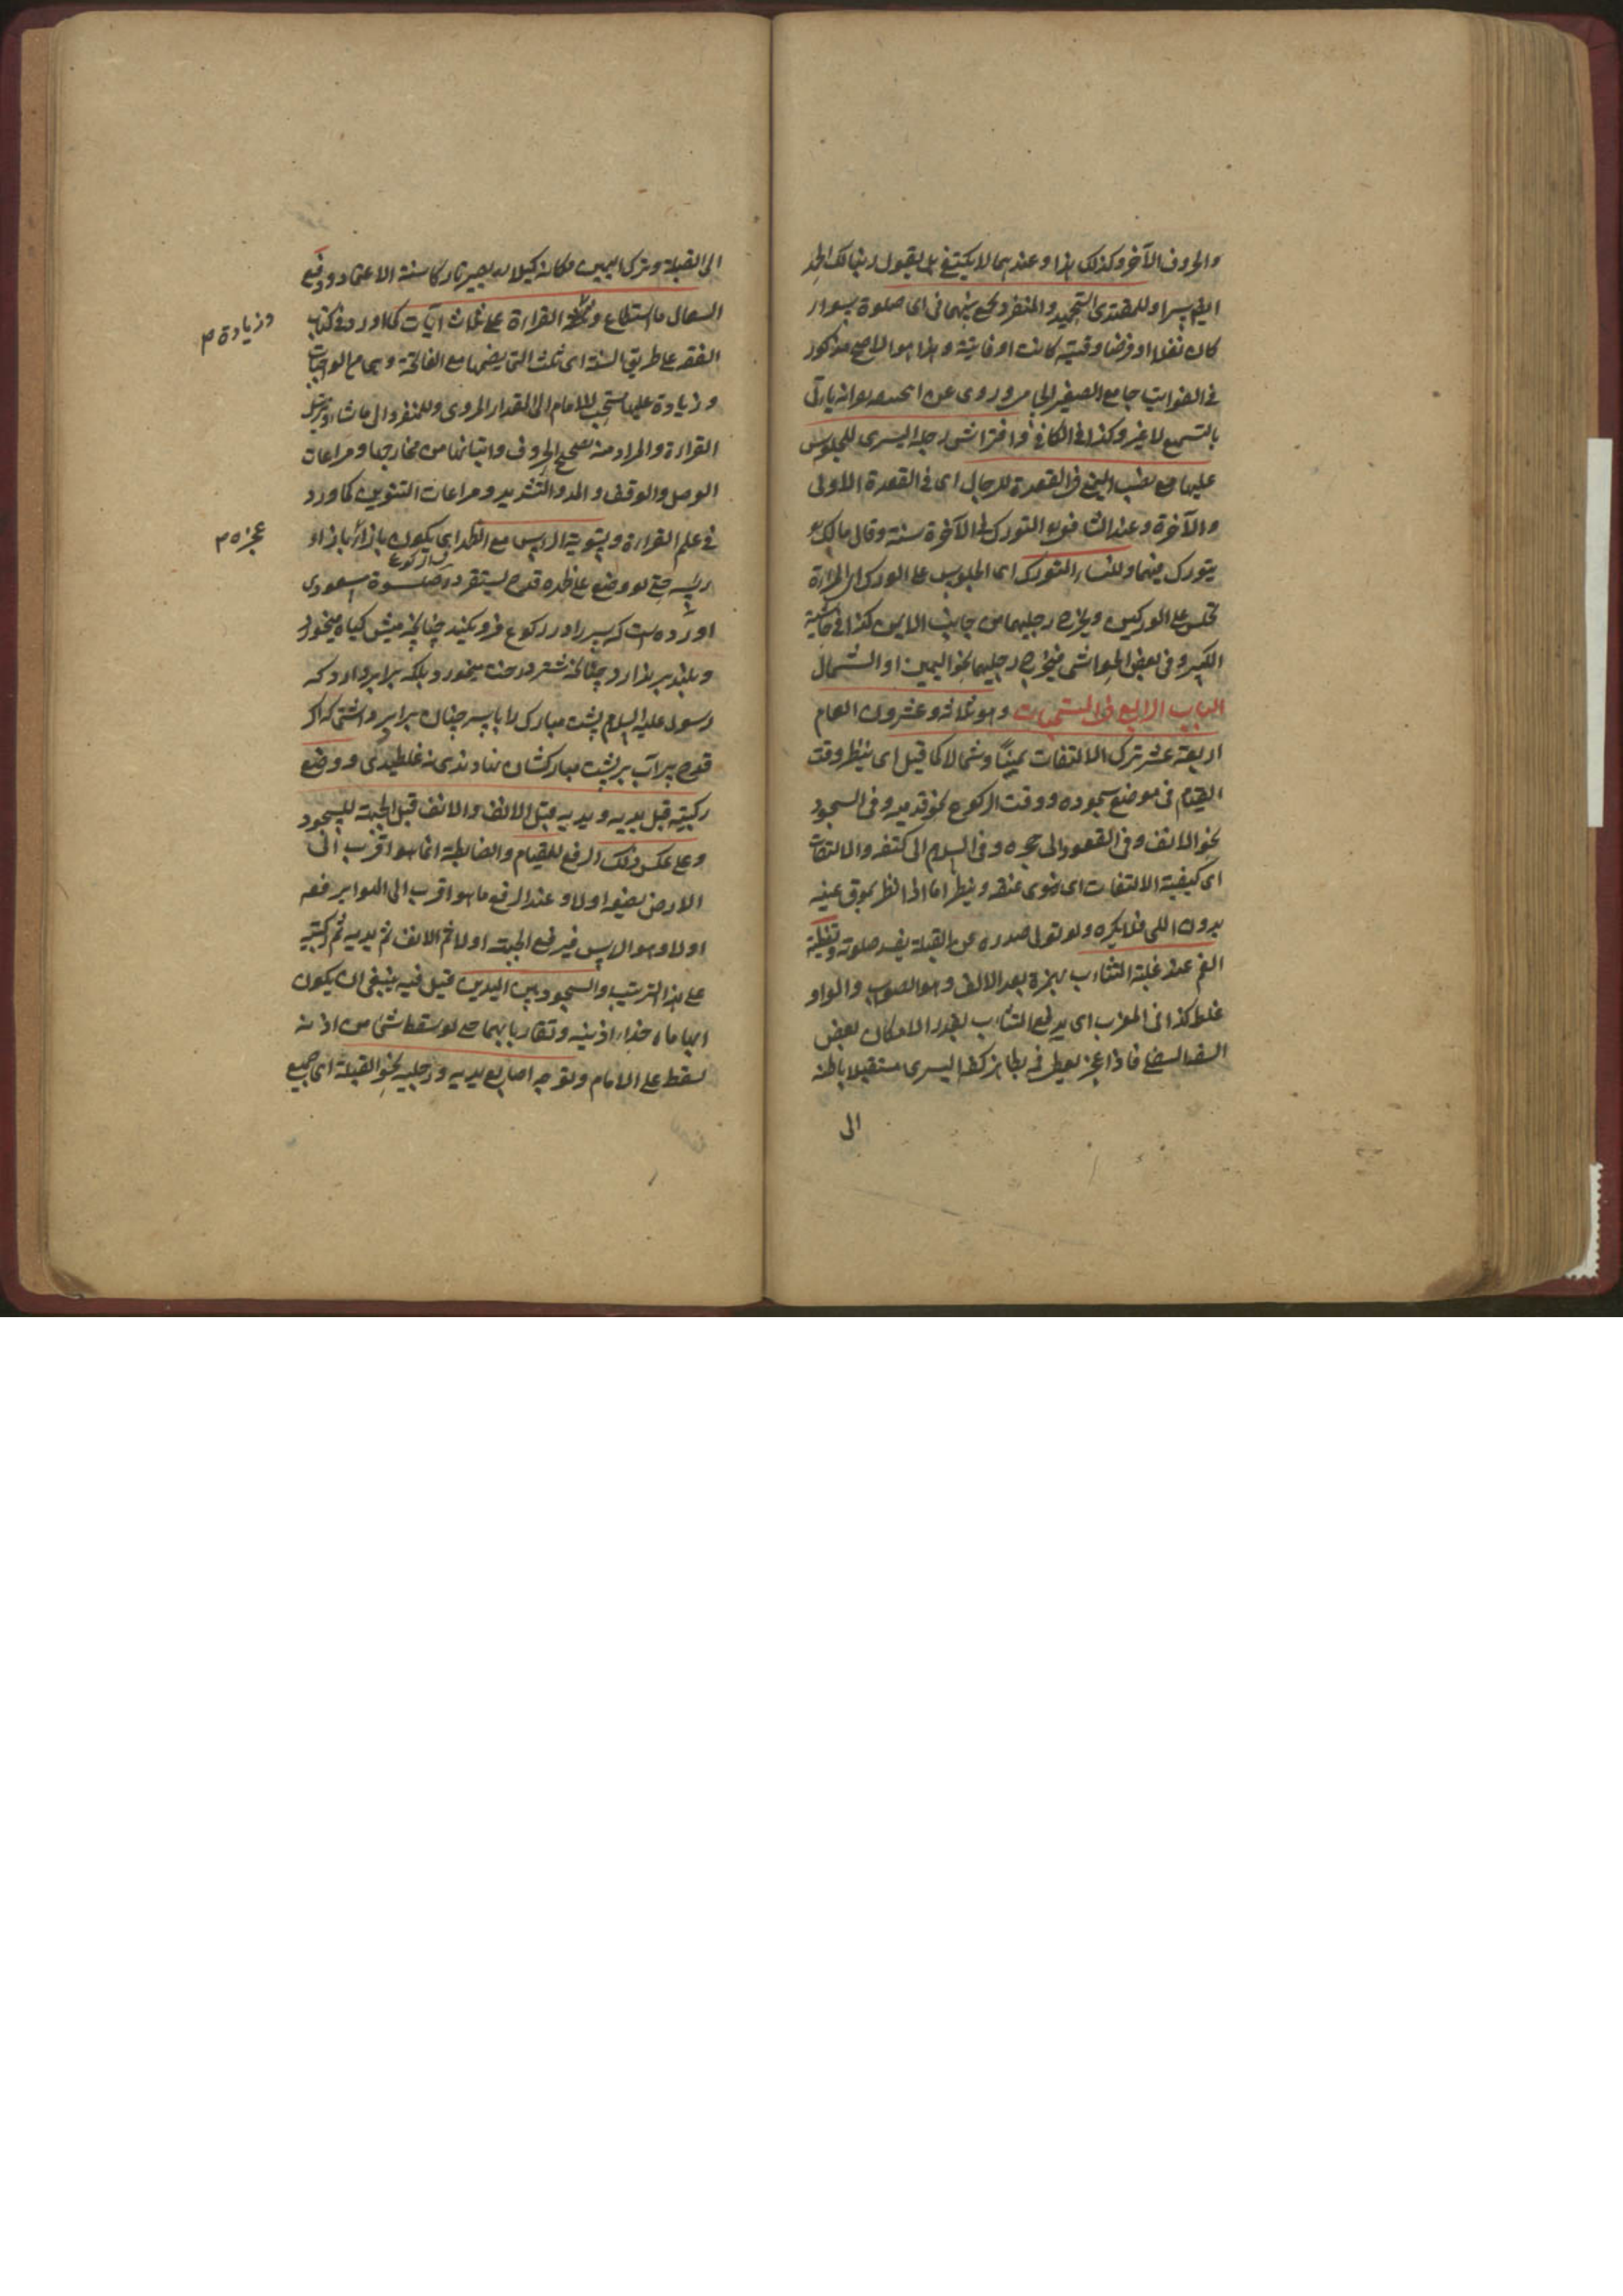 والحروف الآخر وكذلك هذا وعندهما لا يكتفى بل يقول ربنا لك الحمد
ايضا سرا وللمقتدى التحميد والمنفرد يجمع بينهما فى اى صلوة سواء
كان نفلا او فرضا وقتية كانت او فائتة و هذا هو الاصح مذكور
فى جامع الصغير وروى عن ابى حنيفة انه يأتى
بالتسميع لا غير وكذا فى الكافى وافتراش رجله اليسرى للجلوس
عليها مع نصب اليمنى فى القعدة للرجال اى فى القعدة الاولى
والآخرة وعند الشافعى التورك فى الآخرة سنة وقال مالك
يتورك فيهما وللنساء التورك اى الجلوس على الورك اى المرأة
تجلس على الوركين ويخرج رجليها من جانب الايمن كذا فى حاشية
الكبير وفى بعض الحواشى فيخرج رجليها نحو اليمين او الشمال
الباب الرابع فى المستحبات وهو ثمانة وعشرون العام
اربعة عشر ترك الالتفات يمينًا وشمالا كما قيل اى ينظر وقت
القيام فى موضع سجوده ووقت الركوع نحو قدميه وفى السجود
نحو الانف وفى القعود الى حجره وفى السلام الى كتفه والالتفات
اى كيفية الالتفات اى يلوى عنقه وينظر اما اذا نظر بموق عينه
بدون اللى فلا يكره ولو تولى صدره عن القبلة يفسد صلوته وتغطية
الفم عند غلبة التثاءب بهمزة بعد الالف وهو الصواب والواو
غلط كذا فى المغرب اى يدفع التثاءب بقدر الامكان بعض
الشفة السفلى فاذا عجز يغطى فمه بظاهر كفه اليسرى مستقبلا باطنه
الى
الى القبلة وترك اليمين مكانه كيلا يصير تاركا سنة الاعتماد ودفع
السعال ما استطاع القراءة على ثلث آيات كما ورد فى كتب
الفقه على طريق السنة اى ثلث التى يضمها مع الفاتحة و هى مع الواجبات
وزيادة عليها مستحب للامام الى القدار المروى وللمنفرد الى ما شاء وترتيل
القراءة والمراد منه تصحيح الحروف واتيانها من مخارجها ومراعات
الوصل والوقف والمد والتشديد ومراعات التنوين كما ورد
فى علم القراءة وتسوية الرأس مع الظهر اى يكون بازائه بازاء
رأسه حتى لو وضع على ظهره قدح ليستقر در صلوة مسعودى
آورده است كه سر را در ركوع فرو نكند چنانچه ميش گياه ميخورد
وبلند بر ندارد چنانكه شتر درخت ميخورد بلكه برابر دارد كه
رسول عليه السلام پشت مبارك را با سر چنان برابر داشتى كه اگر
قدح پر آب بر پشت مباركشان نهادندى نه غلطيدى ووضع
ركبتيه قبل يديه ويديه قبل الانف والانف قبل الجبهة للسجود
وعلى عكس ذلك الرفع للقيام والضابطة انما هو اقرب الى
الارض يضعه اولا وعند الرفع ما هو اقرب الى الهواء يرفعه
اولا وهو الرأس فيرفع الجبهة اولا ثم الانف ثم يديه ثم ركبتيه
على هذا الترتيب والسجود بين اليدين قيل فيه ينبغى ان يكون
ابهاماه حذاء اذنيه وتقاربا بهما حتى لو سقط شئ من اذنه
لسقط على الابهام وتوجه اصابع يديه ورجليه نحو القبلة اى جميع
وزيادة م
عجزه م